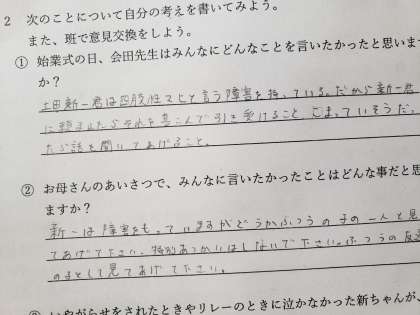 2 次のことについて自分の考えを書いてみよう。
また、班で意見交換をしよう。
① 始業式の日、会田先生はみんなにどんなことを言いたかったと思いま
か？
土田新一君は四肢性マヒと言う障害を持っている。だから新一君
に頼まれたらそれを喜んで引き受けること。こまっていそうだ、
たら話を聞いてあげること。
② お母さんのあいさつで、みんなに言いたかったことはどんな事だと思
ますか？
新一は障害をもっていますがどうかふつうの子の一人と見
てあげて下さい。特別あつかいはしないで下さい。ふつうの友達
のうとして見てあげて下さい。
いやがらせをされたときやリレーのときに泣かなかった新ちゃんが、